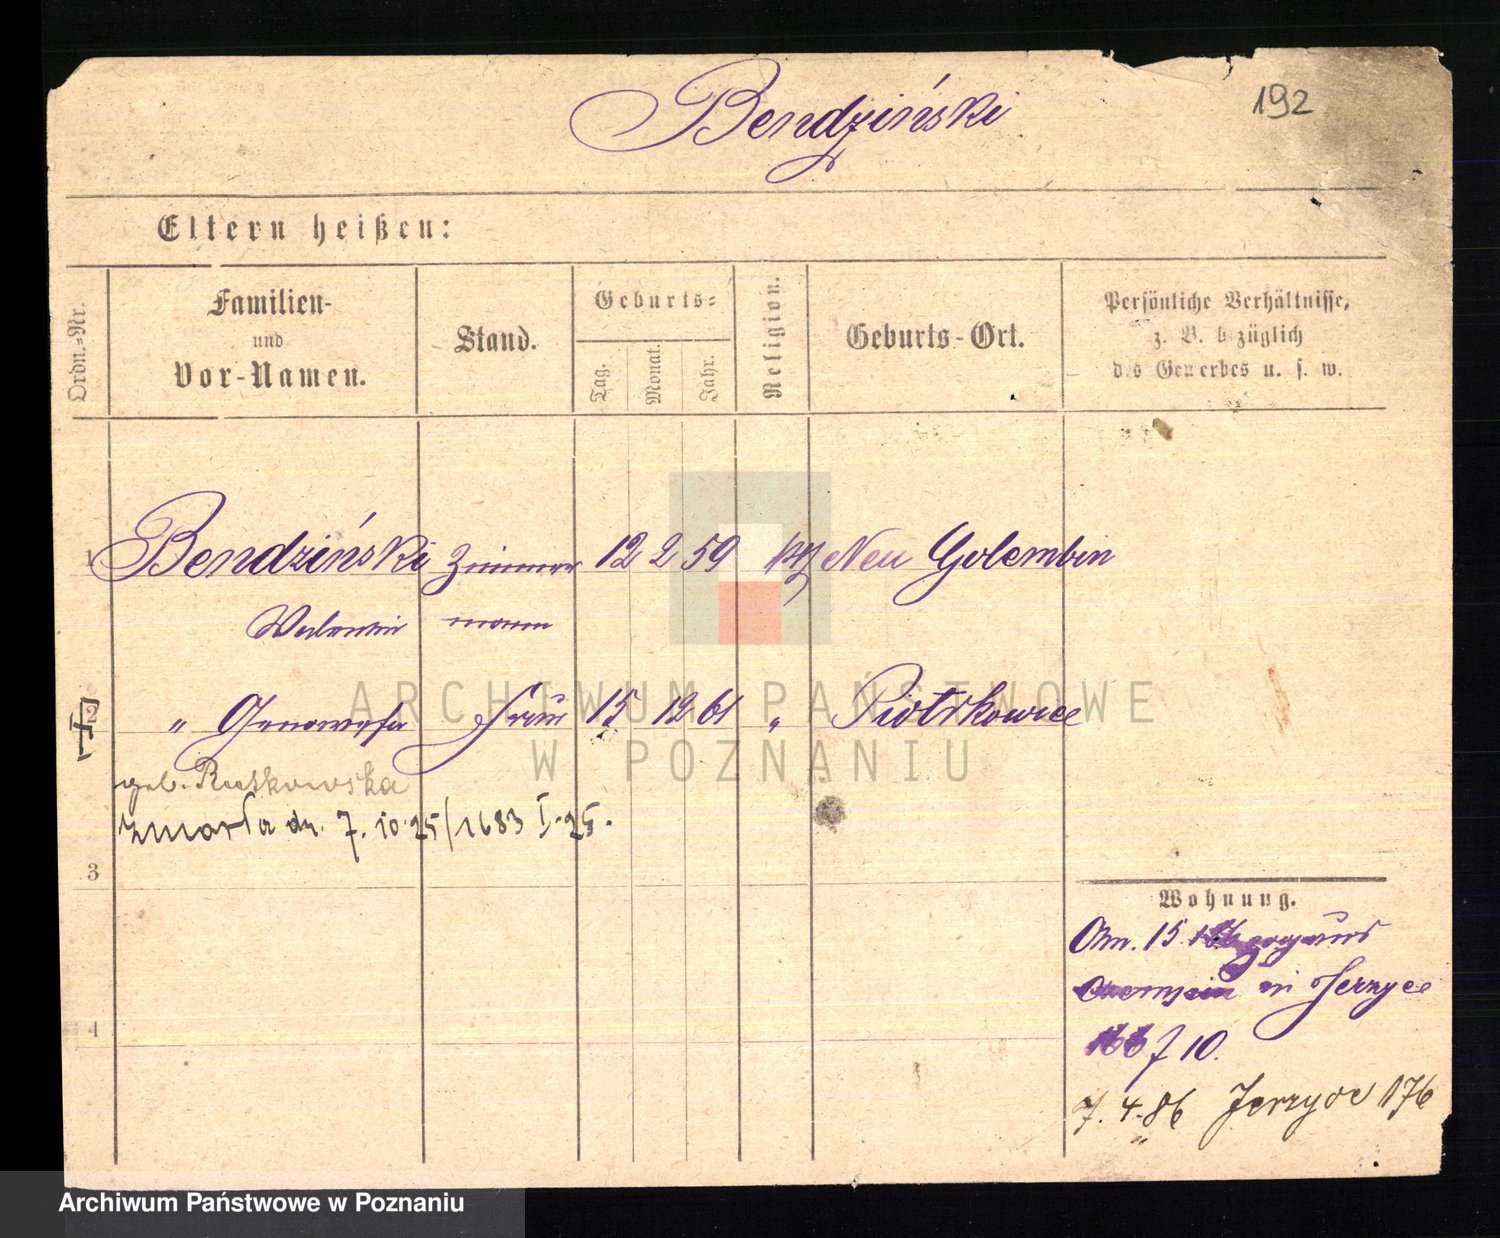 Bendziński
192
Eltern heißen:
Ordn.-Nr.
Familien-
und
Vor-Namen.
Stand.
Geburts-
Tag.
Monat.
Jahr.
Religion.
Geburts-Ort.
Persönliche Verhältnisse,
z. B. bezüglich
des Gewerbes u. s. w.
1 Bendziński Zimmer 12 2 59 kath Neu Golembin
Valentin mann
2 " Genowefa Frau 15 12 61 " Piotrkowice
geb. Ruszkowska
zmarła dn. 7.10.25/1683 I-25.
3
4
Wohnung.
in Jerzyce
10.
7.4.86 Jerzyce 176
ARCHIWUM PAŃSTWOWE
W POZNANIU
Archiwum Państwowe w Poznaniu